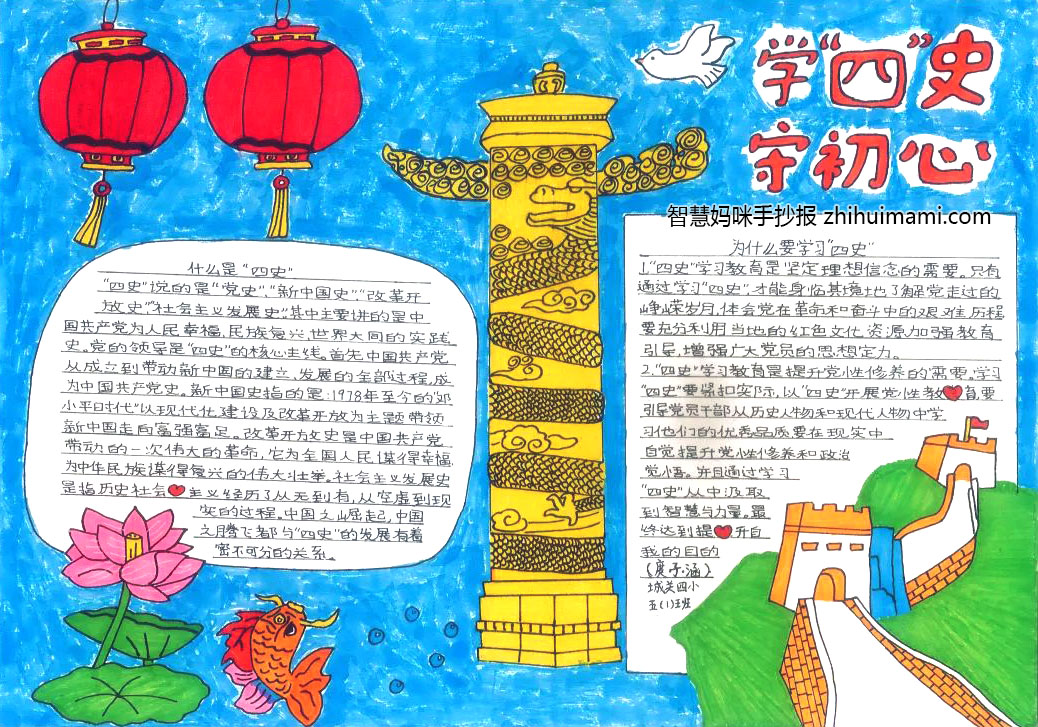 学“四”史
守初心
智慧妈咪手抄报 zhihuimami.com
什么是“四史”
“四史”说的是“党史”、“新中国史”、“改革开
放史”、“社会主义发展史”,其中主要讲的是中
国共产党为人民幸福、民族复兴、世界大同的实践
史。党的领导是“四史”的核心主线。首先中国共产党
从成立到带动新中国的建立、发展的全部过程,成
为中国共产党史。新中国史指的是:1978年至今的“邓
小平时代”以现代化建设及改革开放为主题带领
新中国走向富强富足。改革开放史是中国共产党
带动的一次伟大的革命,它为全国人民谋得幸福,
为中华民族谋得复兴的伟大壮举。社会主义发展史
是指历史社会主义经历了从无到有,从空虚到现
实的过程。中国之崛起,中国
之腾飞都与“四史”的发展有着
密不可分的关系。
为什么要学习“四史”
1.“四史”学习教育是坚定理想信念的需要。只有
通过学习“四史”,才能身临其境地了解党走过的
峥嵘岁月,体会党在革命和奋斗中的艰难历程
要充分利用当地的红色文化资源加强教育
引导,增强广大党员的思想定力。
2.“四史”学习教育是提升党性修养的需要。学习
“四史”要紧扣实际,以“四史”开展党性教育,要
引导党员干部从历史人物和现代人物中学
习他们的优秀品质要在现实中
自觉提升党性修养和政治
觉悟。并且通过学习
“四史”从中汲取
到智慧与力量。最
终达到提升自
我的目的
(庹子涵)
城关四小
五(1)班